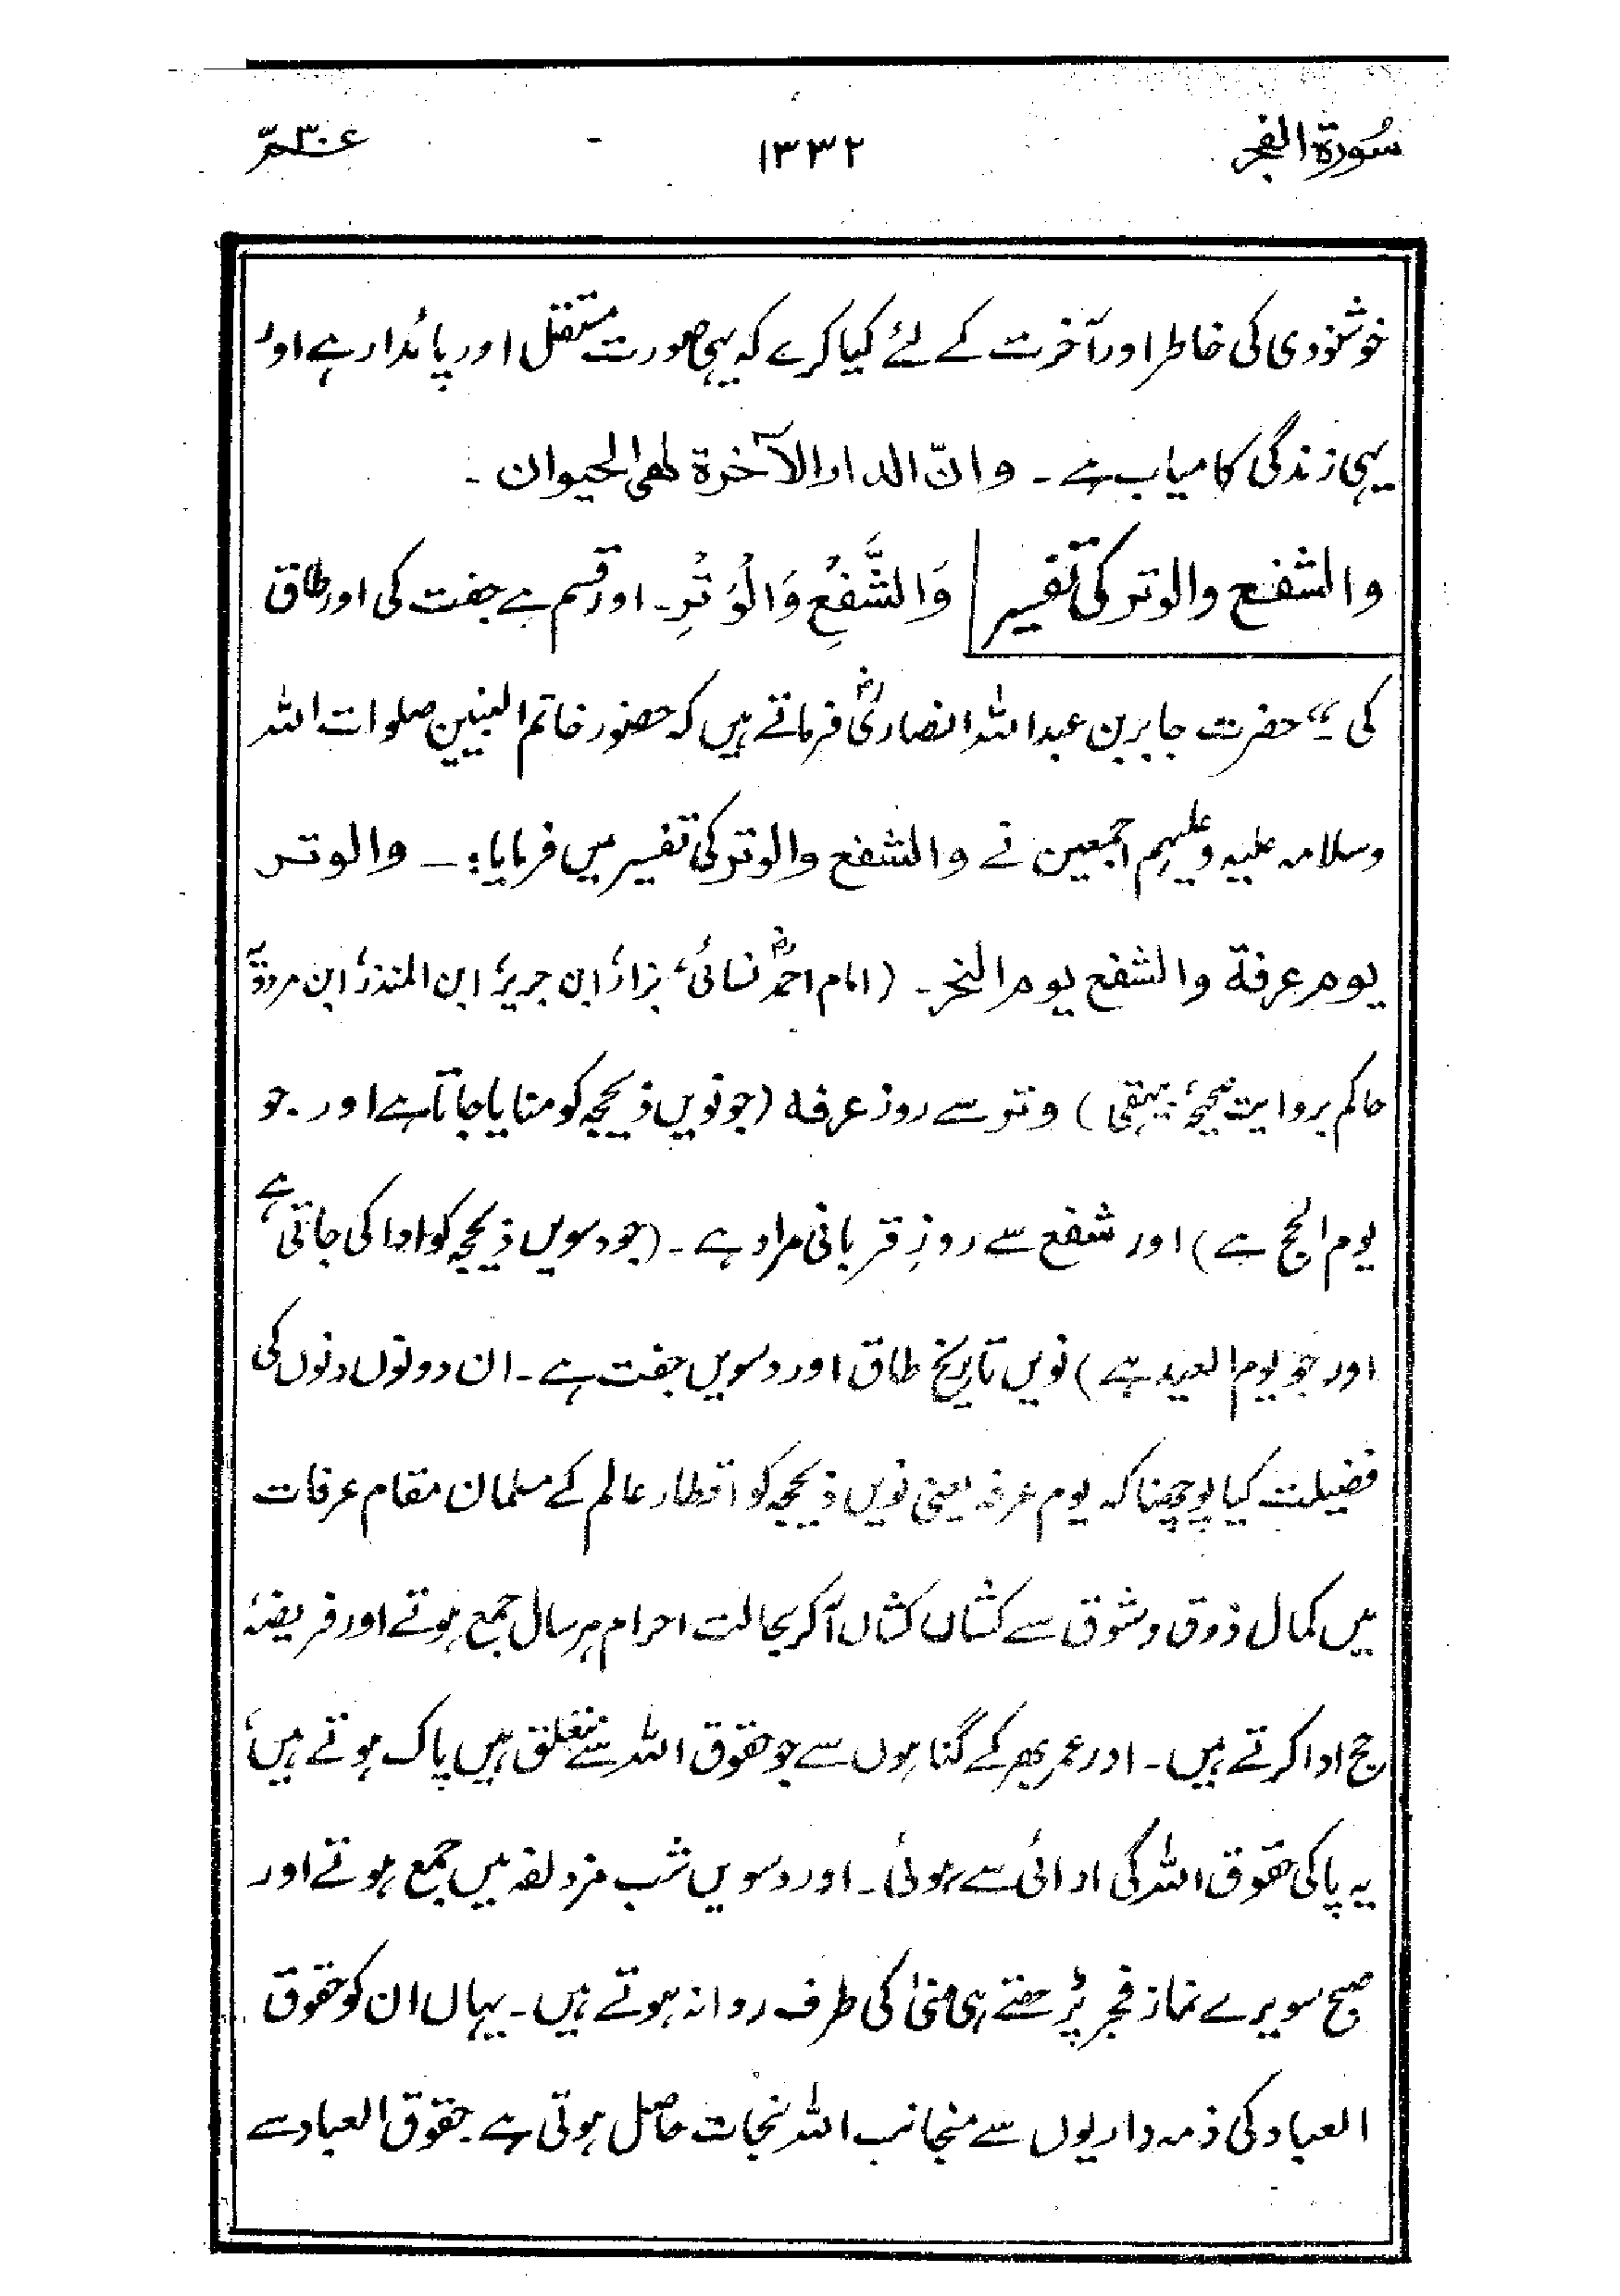 سُورة الفجر ١٣٣٢ عمّ ٣٠
خوشنودی کی خاطر اور آخرت کے لئے کیا کرے کہ یہی صورت مستقل اور پائدار ہے اور
یہی زندگی کامیاب ہے ۔ وانّ الدار الآخرة لهی الحیوان ۔
والشفع والوتر کی تفسیر وَالشَّفْعِ وَالْوَتْرِ ۔ اور قسم ہے جفت کی اور طاق
کی ۔" حضرت جابر بن عبداللہ انصاریؓ فرماتے ہیں کہ حضور خاتم النبیین صلوات اللہ
وسلامہ علیہ وعلیہم اجمعین نے والشفع والوتر کی تفسیر میں فرمایا : ۔ والوتر
یوم عرفة والشفع یوم النحر ۔ (امام احمدؒ نسائی، بزار، ابن جریر، ابن المنذر، ابن مردویہ
حاکم بروایت صحیحہ، بیہقی) وتر سے روز عرفہ (جو نویں ذیحجہ کو منایا جاتا ہے اور جو
یوم الحج ہے) اور شفع سے روزِ قربانی مراد ہے ۔ (جو دسویں ذیحجہ کو ادا کی جاتی ہے
اور جو یوم العید ہے) نویں تاریخ طاق اور دسویں جفت ہے ۔ ان دونوں دنوں کی
فضیلت کیا پوچھنا کہ یوم عرفہ یعنی نویں ذیحجہ کو اقطار عالم کے مسلمان مقام عرفات
میں کمال ذوق وشوق سے کشاں کشاں آکر بحالت احرام ہر سال جمع ہوتے اور فریضۂ
حج ادا کرتے ہیں ۔ اور عمر بھر کے گناہوں سے جو حقوق اللہ سے متعلق ہیں پاک ہوتے ہیں،
یہ پاکی حقوق اللہ کی ادائی سے ہوئی ۔ اور دسویں شب مزدلفہ میں جمع ہوتے اور
صبح سویرے نماز فجر پڑھتے ہی منیٰ کی طرف روانہ ہوتے ہیں ۔ یہاں ان کو حقوق
العباد کی ذمہ داریوں سے منجانب اللہ نجات حاصل ہوتی ہے ۔ حقوق العباد سے